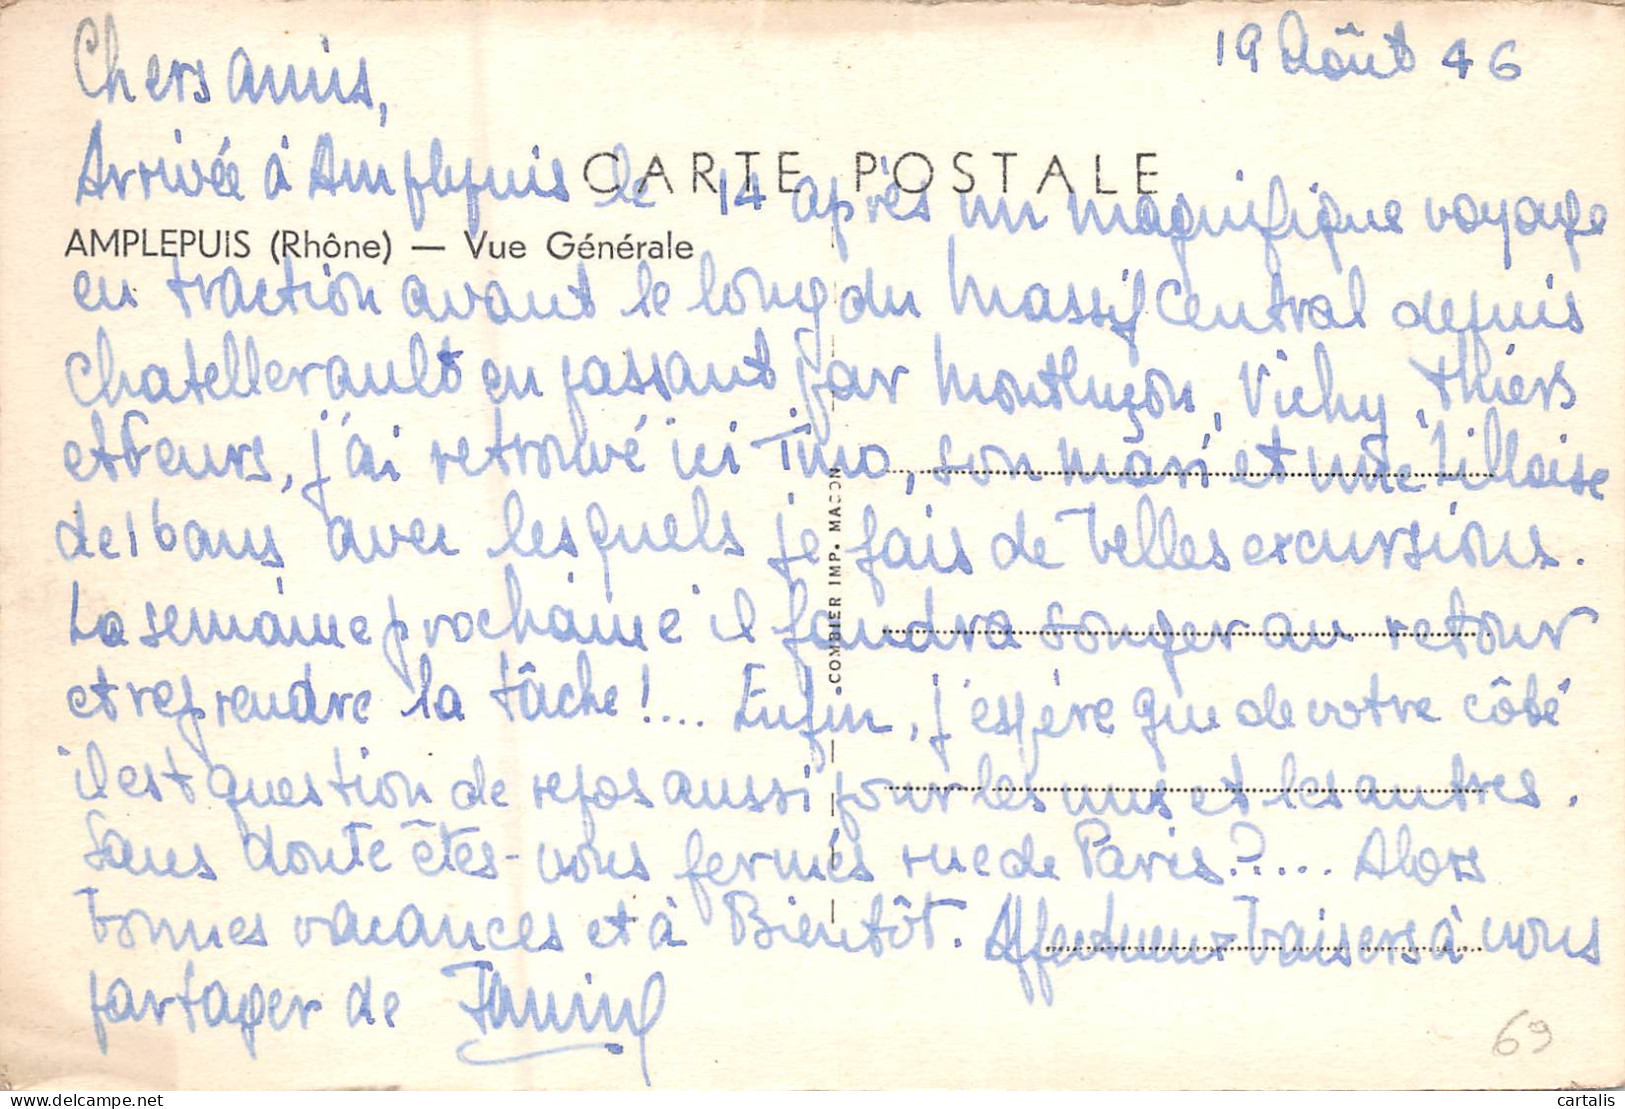 19 Août 46
Chers amis,
CARTE POSTALE
Arrivée à Amplepuis le 14 après un magnifique voyage
AMPLEPUIS (Rhône) — Vue Générale
en traction avant le long du Massif Central depuis
Chatellerault en passant par Montluçon, Vichy, Thiers
et Feurs, j'ai retrouvé ici Tino, son mari et une Lilloise
de 16 ans avec lesquels je fais de belles excursions.
La semaine prochaine il faudra songer au retour
et reprendre la tâche !.... Enfin, j'espère que de votre côté
il est question de repos aussi pour les uns et les autres.
Sans doute êtes-vous fermés rue de Paris ?..... Alors
bonnes vacances et à Bientôt. Affectueux baisers à vous
partager de
COMBIER IMP. MACON
69
cartalis